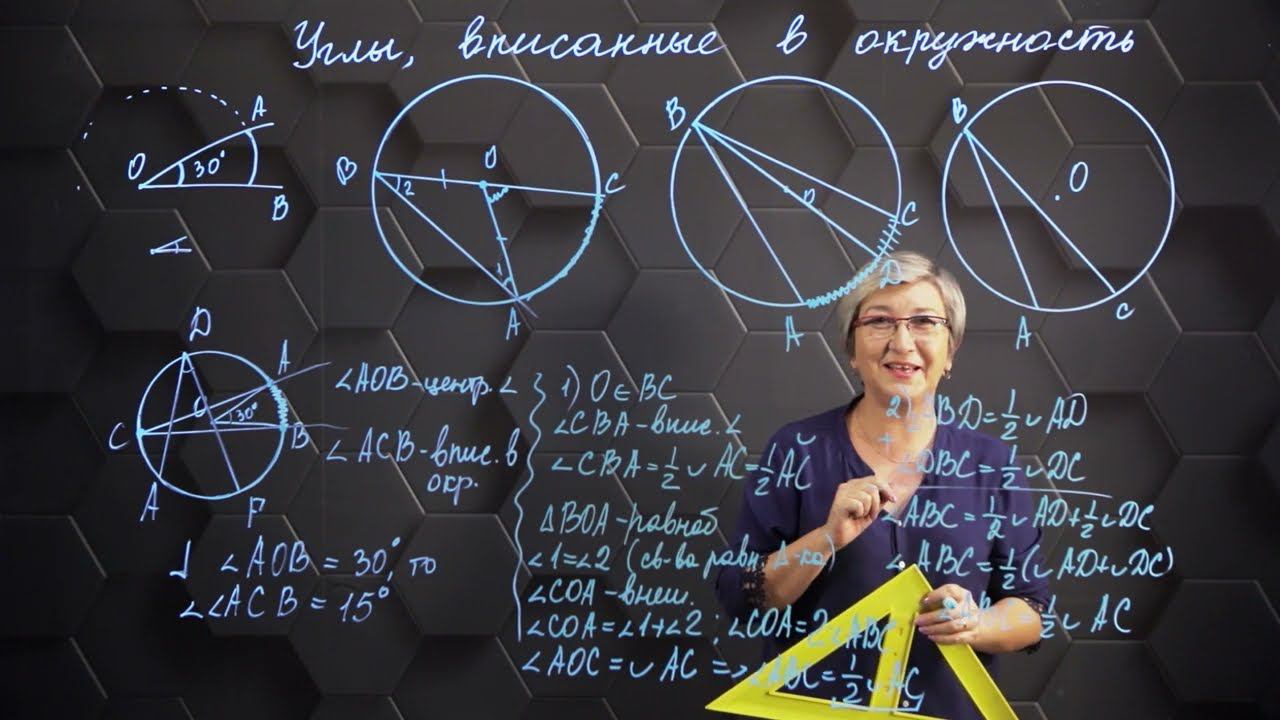 Углы, вписанные в окружность
O 30° A B
B 2 O C 1 A
B O C D A
B O A C
D A O 30° C B A F
∠AOB-центр.∠
∠ACB-впис. в
окр.
∠AOB = 30°, то
∠∠ACB = 15°
1) O∈BC
∠CBA-впис.∠
∠CBA = 1/2 ◡ AC = 1/2 AC
△BOA-равноб
∠1=∠2 (св-ва равн. △-ка)
∠COA-внеш.
∠COA=∠1+∠2; ∠COA=2∠ABC
∠AOC = ◡ AC => ∠ABC = 1/2 ◡ AC
2) ∠ABD = 1/2 ◡ AD
+
∠DBC = 1/2 ◡ DC
∠ABC = 1/2 ◡ AD + 1/2 ◡ DC
∠ABC = 1/2 (◡ AD + ◡ DC)
∠ABC = 1/2 ◡ AC